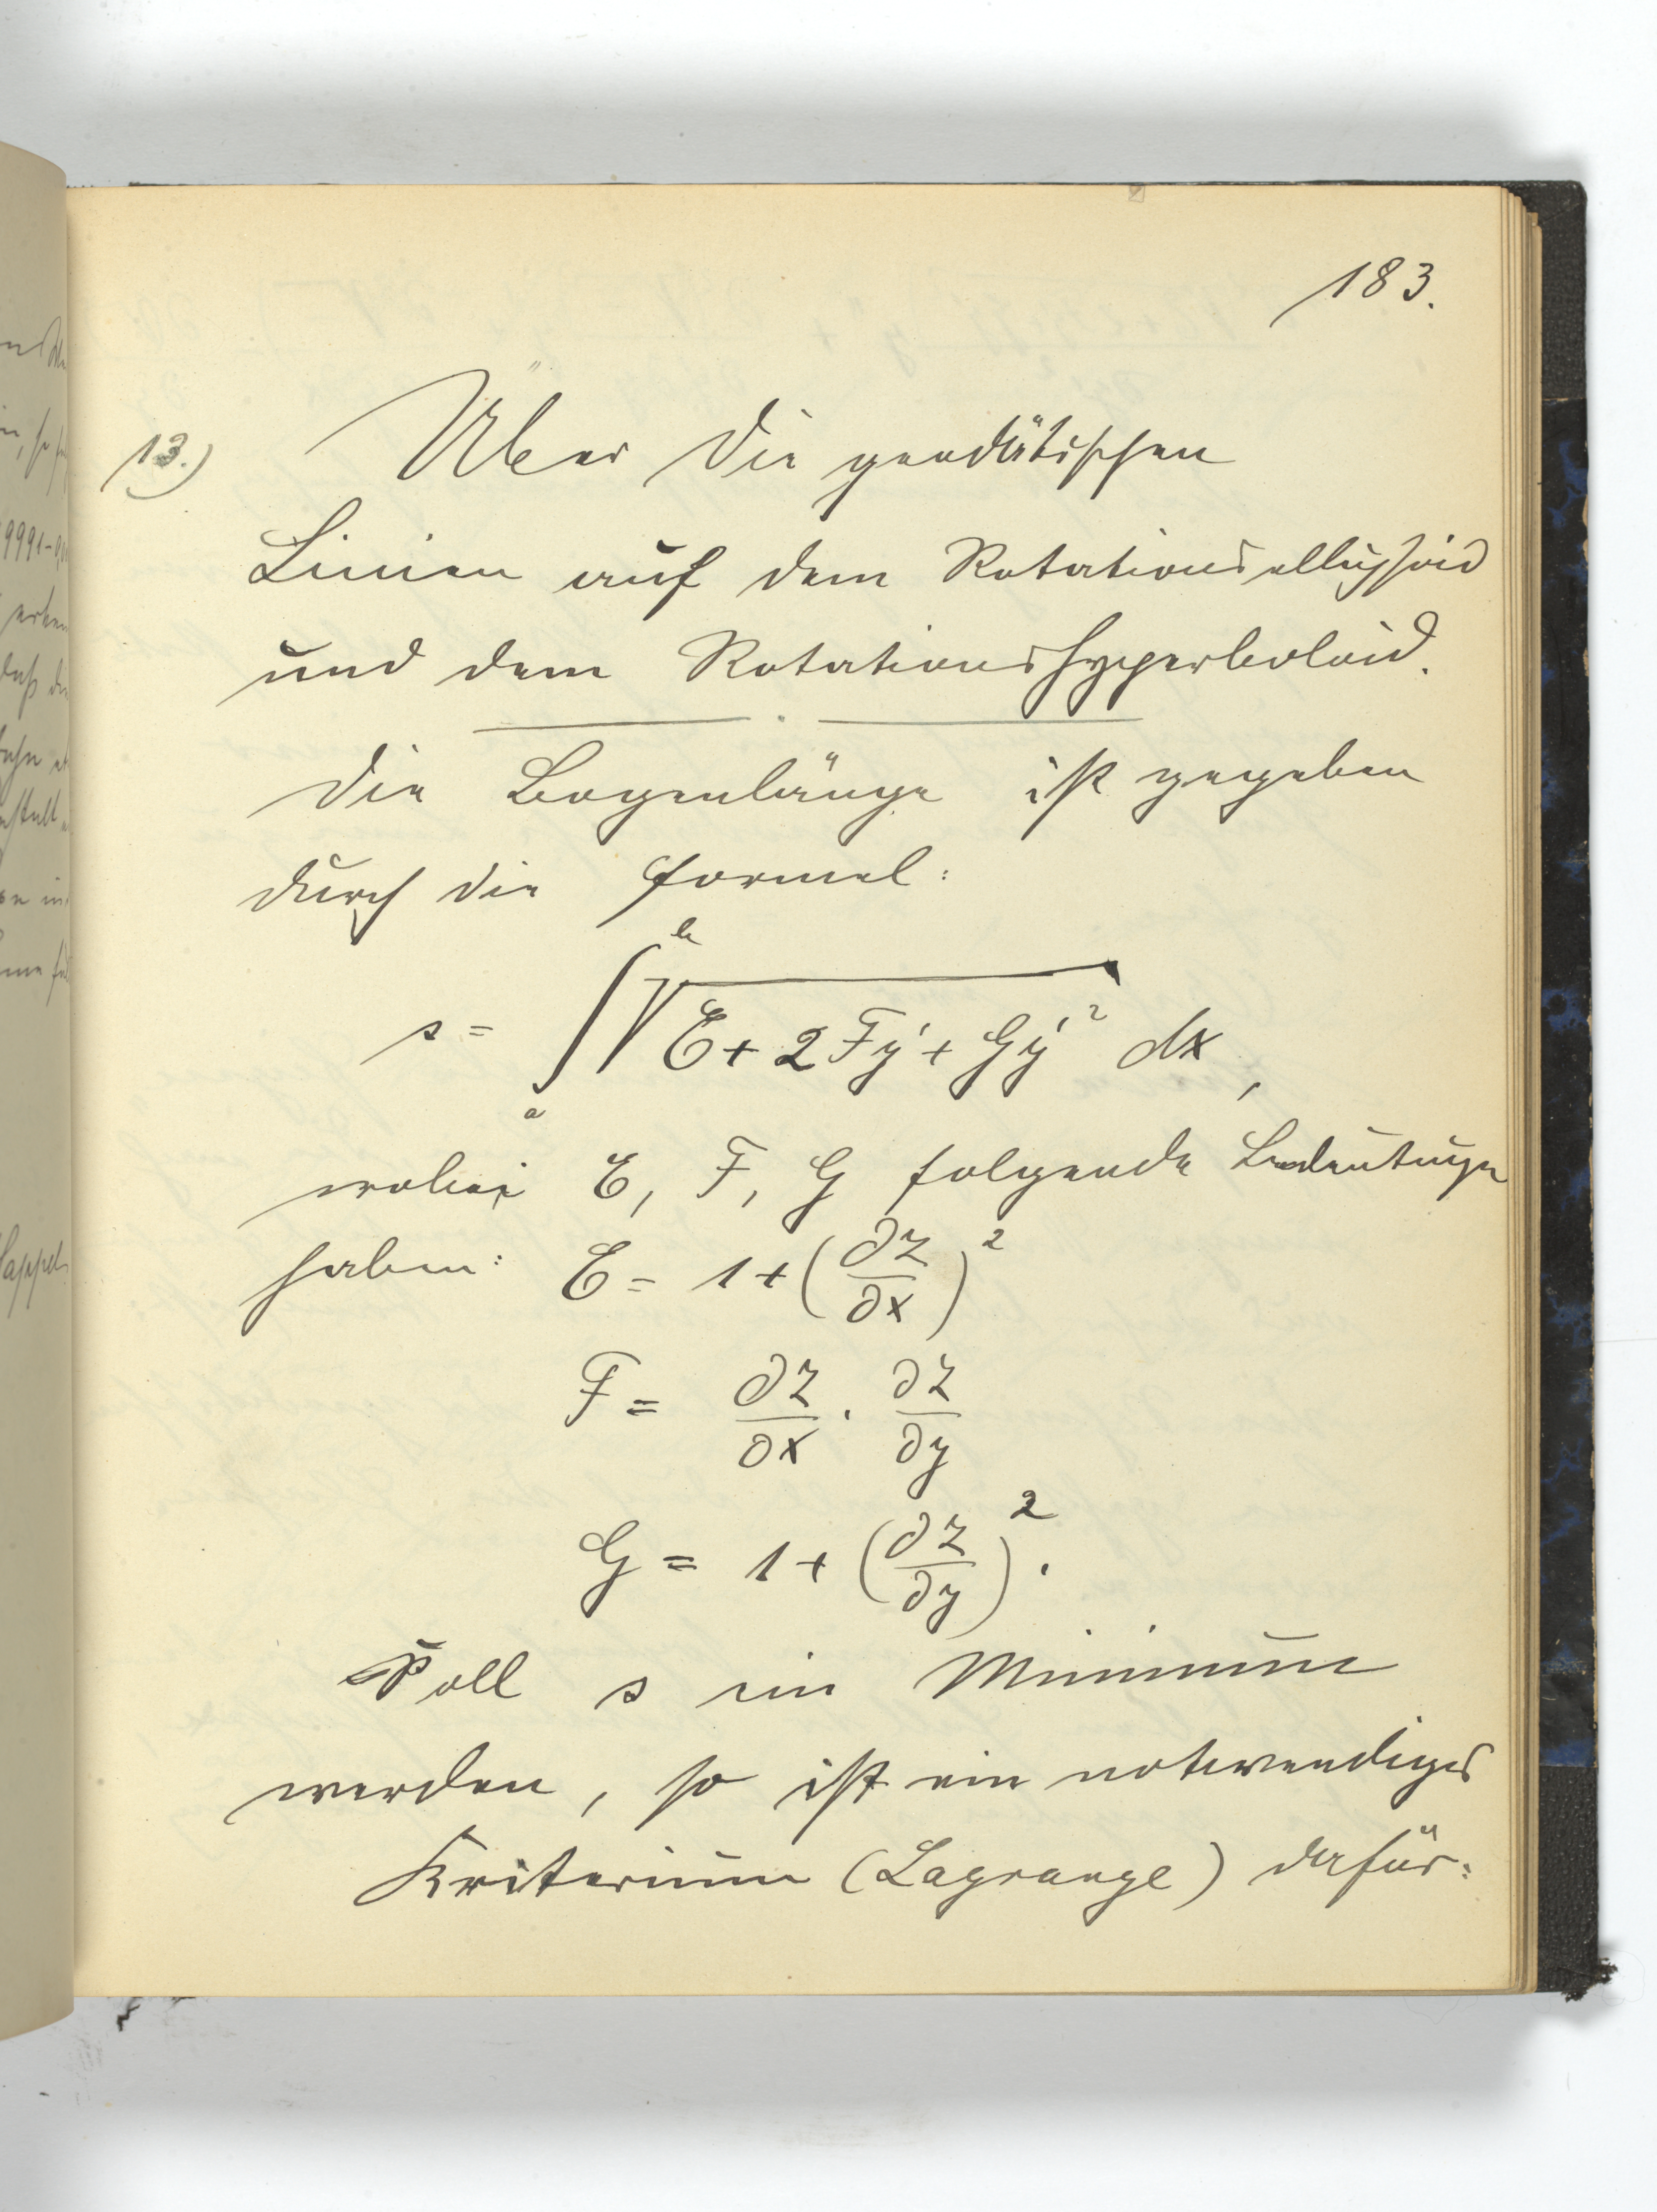 183.
13.) Über die geodätischen
Linien auf dem Rotationsellipsoid
und dem Rotationshyperboloid.
Die Bogenlänge ist gegeben
durch die Formel:
s = ∫ₐᵇ √(E + 2Fy' + Gy'²) dx,
wobei E, F, G folgende Bedeutungen
haben: E = 1 + (∂z/∂x)²
F = ∂z/∂x · ∂z/∂y
G = 1 + (∂z/∂y)².
Soll s ein Minimum
werden, so ist ein notwendiges
Kriterium (Lagrange) dafür: